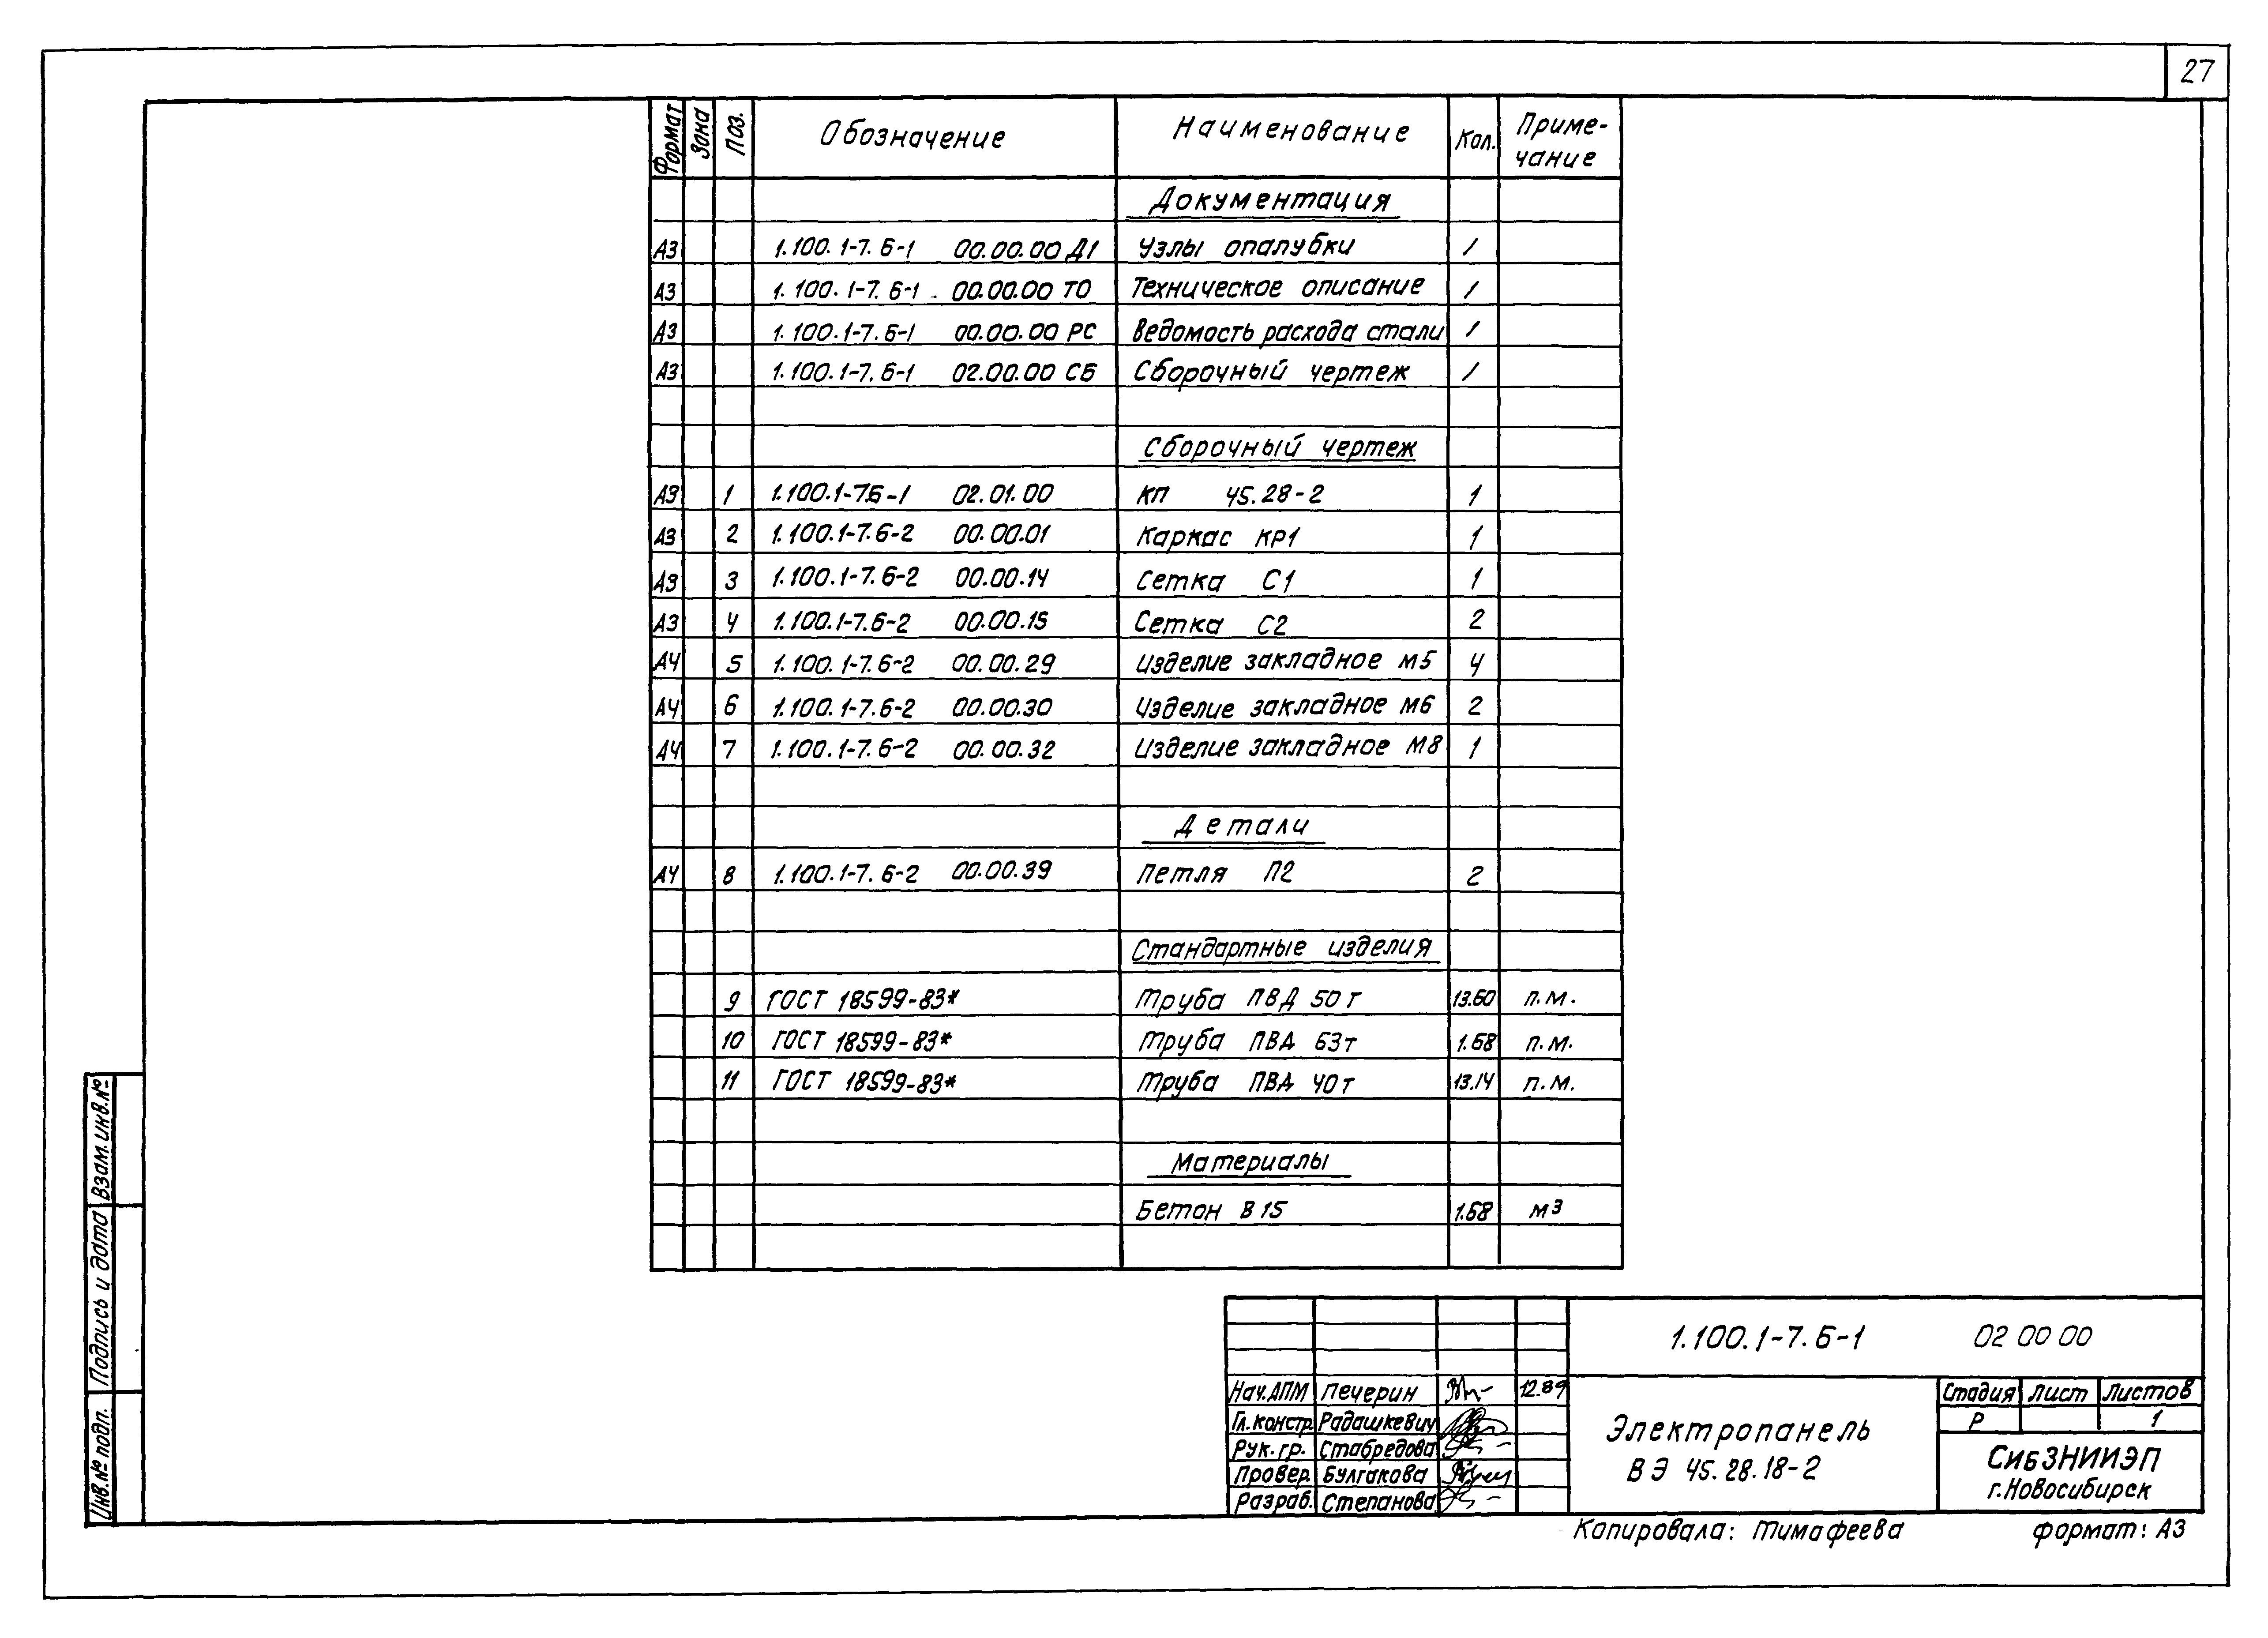 27
Формат Зона Поз. Обозначение Наименование Кол. Приме-
чание
Документация
А3 1.100.1-7.6-1 00.00.00 Д1 Узлы опалубки 1
А3 1.100.1-7.6-1 00.00.00 ТО Техническое описание 1
А3 1.100.1-7.6-1 00.00.00 РС Ведомость расхода стали 1
А3 1.100.1-7.6-1 02.00.00 СБ Сборочный чертеж 1
Сборочный чертеж
А3 1 1.100.1-7.6-1 02.01.00 КП 45.28-2 1
А3 2 1.100.1-7.6-2 00.00.01 Каркас КР1 1
А3 3 1.100.1-7.6-2 00.00.14 Сетка С1 1
А3 4 1.100.1-7.6-2 00.00.15 Сетка С2 2
А4 5 1.100.1-7.6-2 00.00.29 Изделие закладное М5 4
А4 6 1.100.1-7.6-2 00.00.30 Изделие закладное М6 2
А4 7 1.100.1-7.6-2 00.00.32 Изделие закладное М8 1
Детали
А4 8 1.100.1-7.6-2 00.00.39 Петля П2 2
Стандартные изделия
9 ГОСТ 18599-83* Труба ПВД 50т 13.60 п.м.
10 ГОСТ 18599-83* Труба ПВД 63т 1.68 п.м.
11 ГОСТ 18599-83* Труба ПВД 40т 13.14 п.м.
Материалы
Бетон В15 1.68 м3
Взам.инв.№
Подпись и дата
Инв.№ подл.
1.100.1-7.6-1 02 00 00
Нач.АПМ Печерин 12.89
Гл.констр. Радашкевич
Рук.гр. Стабредова
Провер. Булгакова
Разраб. Степанова
Электропанель
ВЭ 45.28.18-2
Стадия Лист Листов
Р 1
СибЗНИИЭП
г.Новосибирск
Копировала: Тимафеева формат: А3